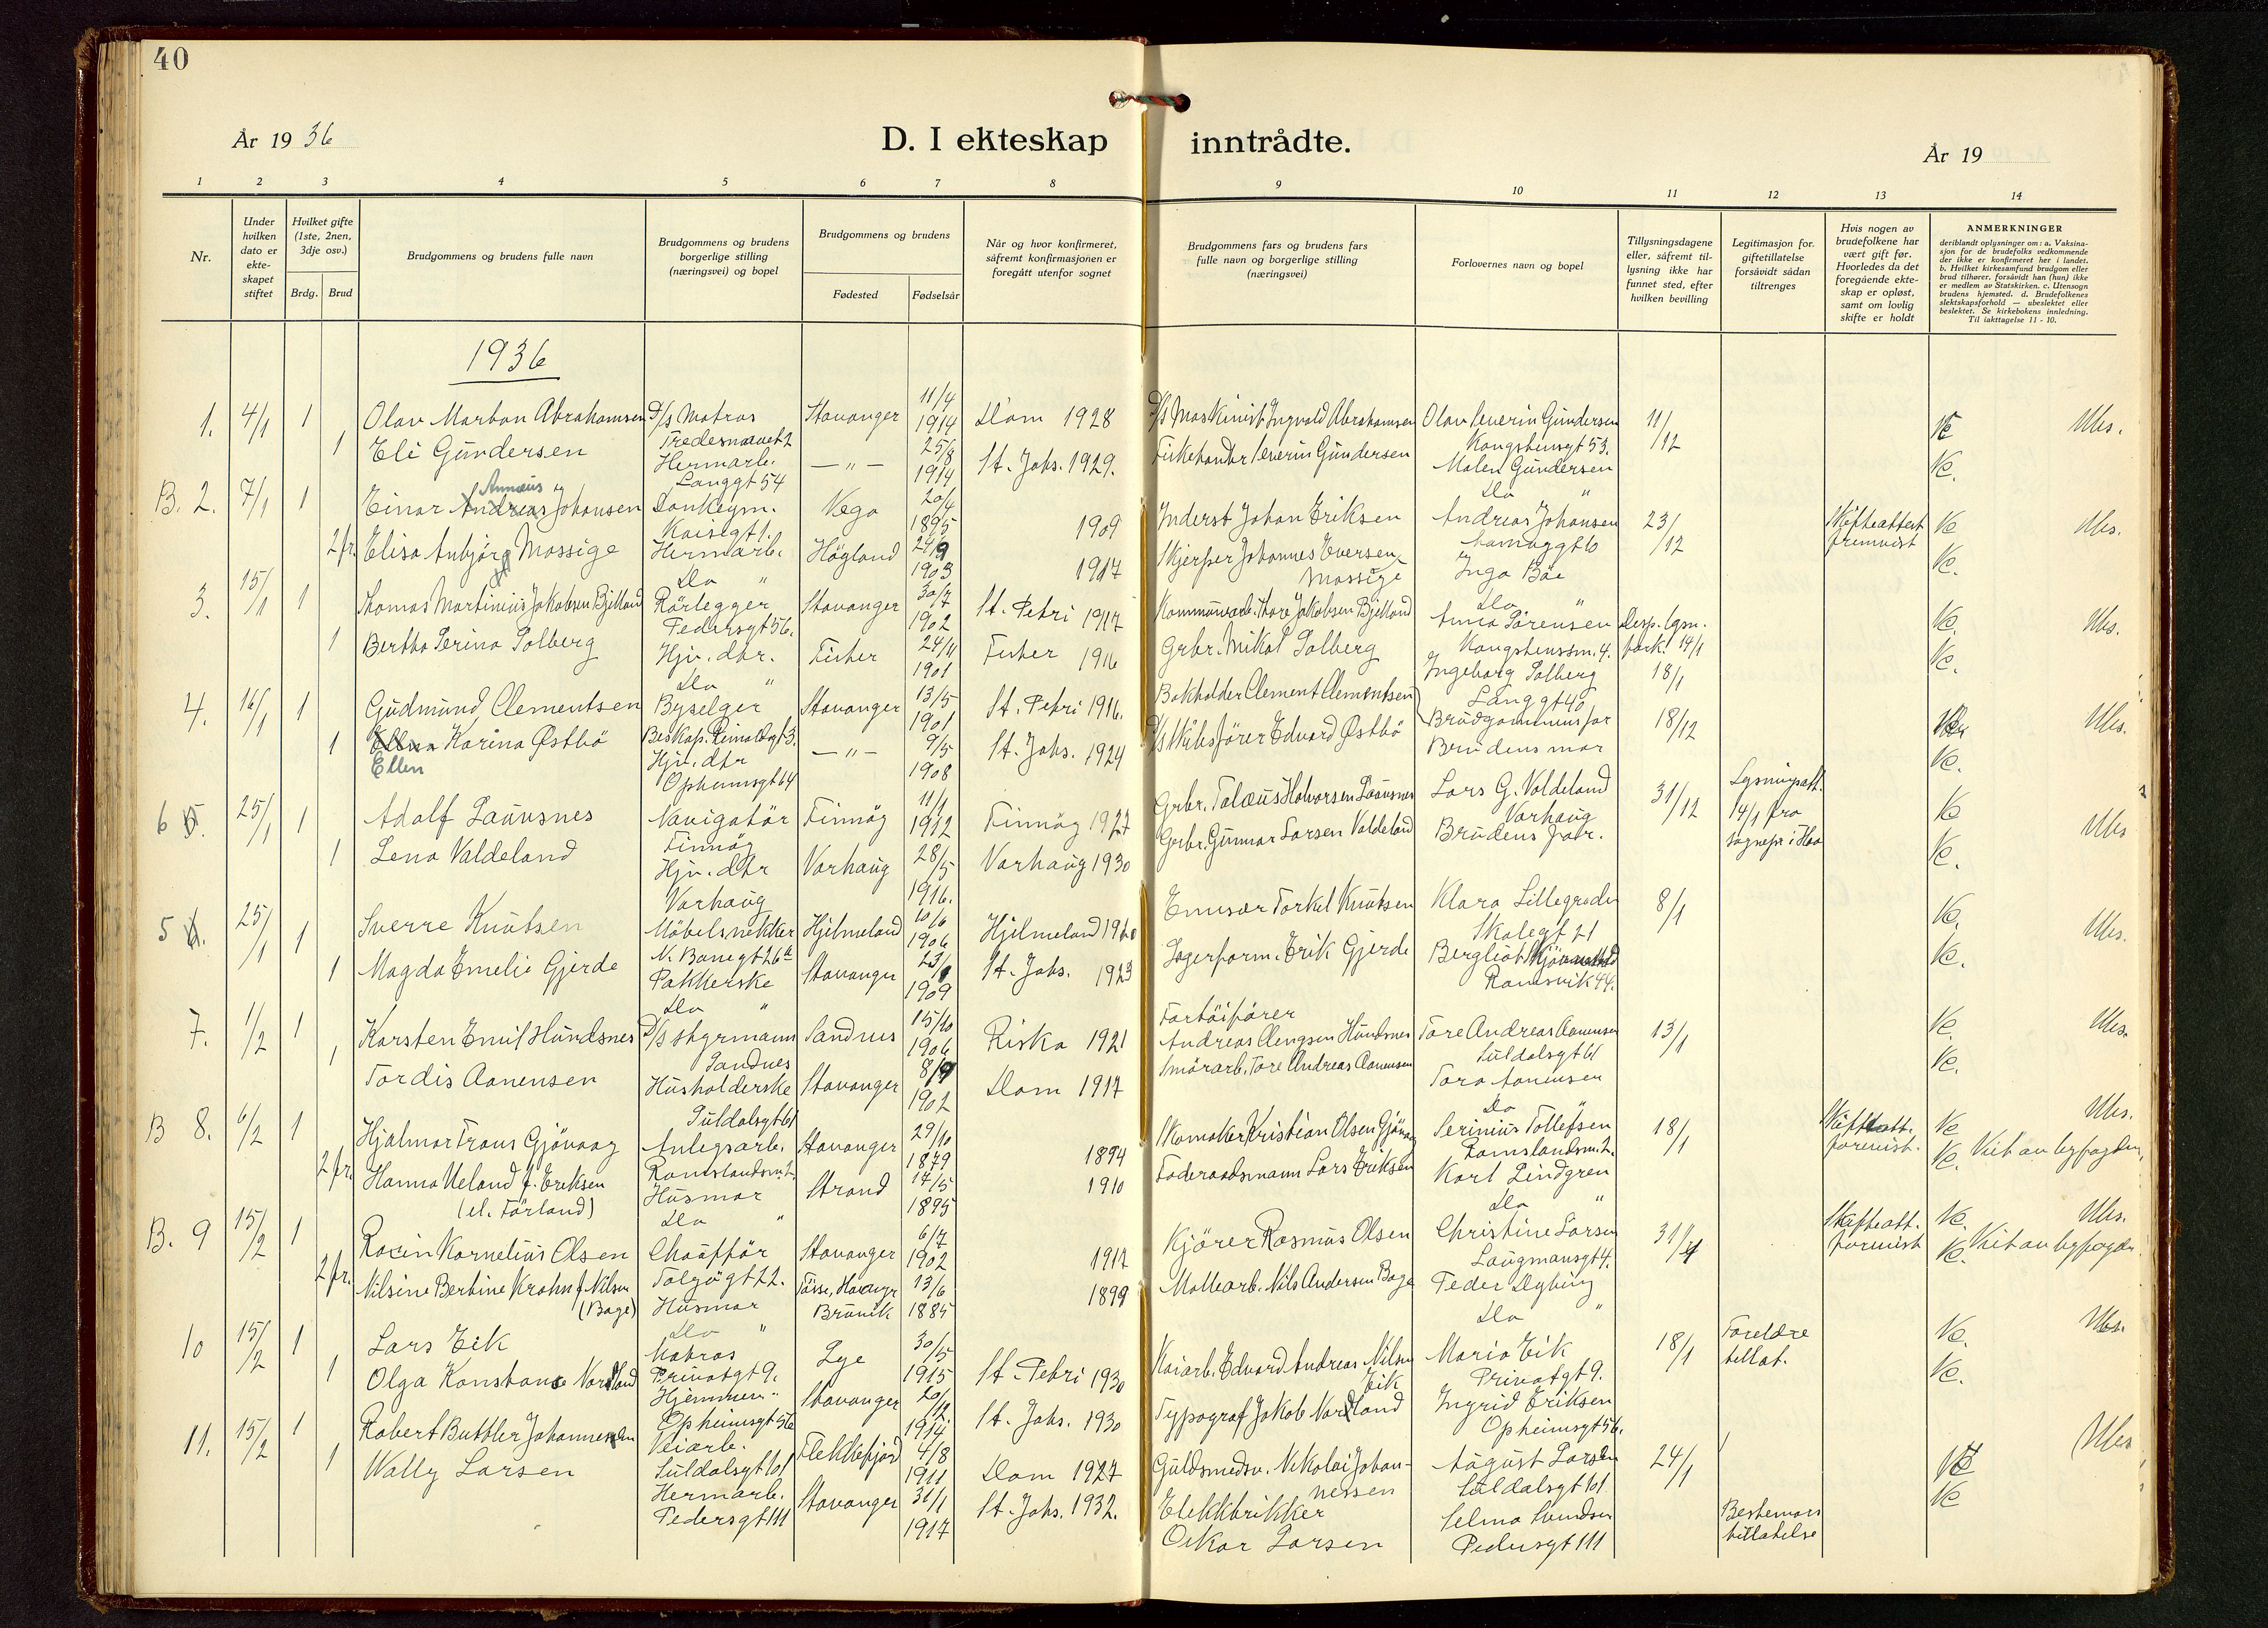 40
År 1936
D. I ekteskap inntrådte.
År 19
1 2 3 4 5 6 7 8 9 10 11 12 13 14
Nr.
Under hvilken dato er ekte-skapet stiftet
Hvilket gifte (1ste, 2nen, 3dje osv.)
Brdg. Brud
Brudgommens og brudens fulle navn
Brudgommens og brudens borgerlige stilling (næringsvei) og bopel
Brudgommens og brudens
Fødested
Fødselsår
Når og hvor konfirmeret, såfremt konfirmasjonen er foregått utenfor sognet
Brudgommens fars og brudens fars fulle navn og borgerlige stilling (næringsvei)
Forlovernes navn og bopel
Tillysningsdagene eller, såfremt til-lysning ikke har funnet sted, efter hvilken bevilling
Legitimasjon for. giftetillatelse forsåvidt sådan tiltrenges
Hvis nogen av brudefolkene har vært gift før. Hvorledes da det foregående ekte-skap er opløst, samt om lovlig skifte er holdt
ANMERKNINGER
deriblandt oplysninger om: a. Vaksina-sjon for de brudefolks vedkommende der ikke er konfirmeret her i landet. b. Hvilket kirkesamfund brudgom eller brud tilhører, forsåvidt han (hun) ikke er medlem av Statskirken. c. Utensogn brudens hjemsted. d. Brudefolkenes slektskapsforhold — ubeslektet eller beslektet. Se kirkebokens innledning. Til iakttagelse 11 - 10.
1936
1. 4/1 1 Olav Morton Abrahamsen D/s Matros Stavanger 11/4 1914 Dom 1928 D/s Maskinist Ingvald Abrahamsen Olav Severin Gundersen 11/12 Ubs.
1 Eli Gundersen Hermarb. Langgt 54 — " — 25/8 1914 St. Johs. 1929. Severin Gundersen Kongstensgt 53. Malen Gundersen Do "
B. 2. 7/1 1 Einar Andreas Annæus Johansen Donkeym. Kaisegt 1. Vega 20/4 1895 1909 Inderst Johan Eriksen Andreas Johansen 23/12 Skifteattest fremvist Vc Ubs.
2 fr. Elisa Anbjörg Mossige Hermarb. Do " Högland 24/9 1903 1917 Skjerper Johannes Eversen Mossige Inga Böe Do " Vc.
3. 15/1 1 Thomas Martinius Jakobsen Bjelland Rörlegger Pedersgt 56. Stavanger 30/7 1902 St. Petri 1917 Kommunearb. Thore Jakobsen Bjelland Anna Sörensen Kongstenssm. 4. 14/1 Vc. Ubs.
1 Bertha Serina Solberg Hjv. dtr. Do " Fister 24/11 1901 Fister 1916 Grbr. Mikal Solberg Ingeborg Solberg Langgt 40 18/1 Vc.
4. 16/1 1 Gudmund Clementsen Byselger Stavanger 13/5 1901 St. Petri 1916. Bokholder Clement Clementsen Brudgommens far 18/12 Ubs.
1 Ellen Karina Østbö Hjv. dtr Opheimsgt 64 — " — 9/5 1908 St. Johs. 1924 D/s Edvard Østbö Brudens mor Vc.
6 5. 25/1 1 Adolf Launsnes Navigatör Finnöy Finnöy 11/1 1912 Finnöy 1927 Grbr. Talæus Halvorsen Launsnes Lars G. Valdeland Varhaug 31/12 Lysningsatt. 14/1 fra Vc Ubs
1 Lena Valdeland Hjv. dtr Varhaug Varhaug 28/5 1916. Varhaug 1930 Grbr. Gunnar Larsen Valdeland Brudens far. Vc.
5 6. 25/1 1 Sverre Knutsen Möbelsnekker N. Banegt 26 Hjelmeland 10/6 1906 Hjelmeland Torkel Knutsen Klara Lillegraden Skolegt 21 8/1 Vc. Ubs.
1 Magda Emelie Gjerde Pakkerske Do " Stavanger 1909 St. Johs. 1923 Lagerform. Erik Gjerde Bergliot Ramsvik 44. Vc.
7. 1/2 1 Karsten Emil Hundsnes D/s styrmann Sandnes Sandnes 15/10 1906 Riska 1921 Fartöiförer Andreas Clengsen Hundsnes Tore Andreas Aanensen Suldalsgt 61 13/1 Vc. Ubs.
1 Tordis Aanensen Husholderske Suldalsgt 61 Stavanger 8/9 1902 Dom 1917 Smörarb. Tore Andreas Aanensen Tora Aanensen Do " Vc.
B 8. 6/2 1 Hjalmar Frans Gjövaag Anlegsarb. Ramslandsm. 2. Stavanger 29/10 1879 1894 Skomaker Kristian Olsen Gjövaag Serinius Tollefsen Ramslandsm. 2. 18/1 Skifteatt. forevist. Vc Ubs.
2 fr. Hanna Ueland f. Eriksen (el. Förland) Husmor Do " Strand 17/5 1895 1910 Föderaadsmann Lars Eriksen Karl Lindgren Do " Vc. Viet av byfogden
B. 9 15/2 1 Kornelius Olsen Chaufför Stavanger 6/7 1902 1917 Kjörer Rasmus Olsen Christine Larsen Laugmansgt 4. 31/1 Skifteatt. forevist Vc. Ubs.
2 fr. Nilsine Bertine Krohn f. Nilsen (Bage) Husmor Do " 13/6 1885 1899 Nils Andersen Bage Peder Dybing Do " Vc. Viet av byfogden
10 15/2 1 Lars Eik Matros Privatgt 9. Lye 30/5 1915 St. Petri 1930 Kaiarb. Edvard Andreas Nilsen Eik Maria Eik Privatgt 9. 18/1 Foreldre tillat. Vc. Ubs.
1 Olga Konstanse Nordland Hjemmev. Opheimsgt 56 Stavanger 20/12. 1914 St. Johs. 1930 Typograf Jakob Nordland Ingrid Eriksen Opheimsgt 56. Vc.
11. 15/2 1 Robert Buttler Johannessen Veiarb. Suldalsgt 101 Flekkefjord 4/8 1911 Dom 1927 Guldsmedsv. Nikolai Johan-nessen August Larsen Suldalsgt 101 24/1 Ubs
1 Wally Larsen Hermarb. Pedersgt 111 Stavanger 31/1 1917 St. Johs. 1932. Elektriker Oskar Larsen Selma Svendsen Pedersgt 111 Bestemors tillatelse Vc